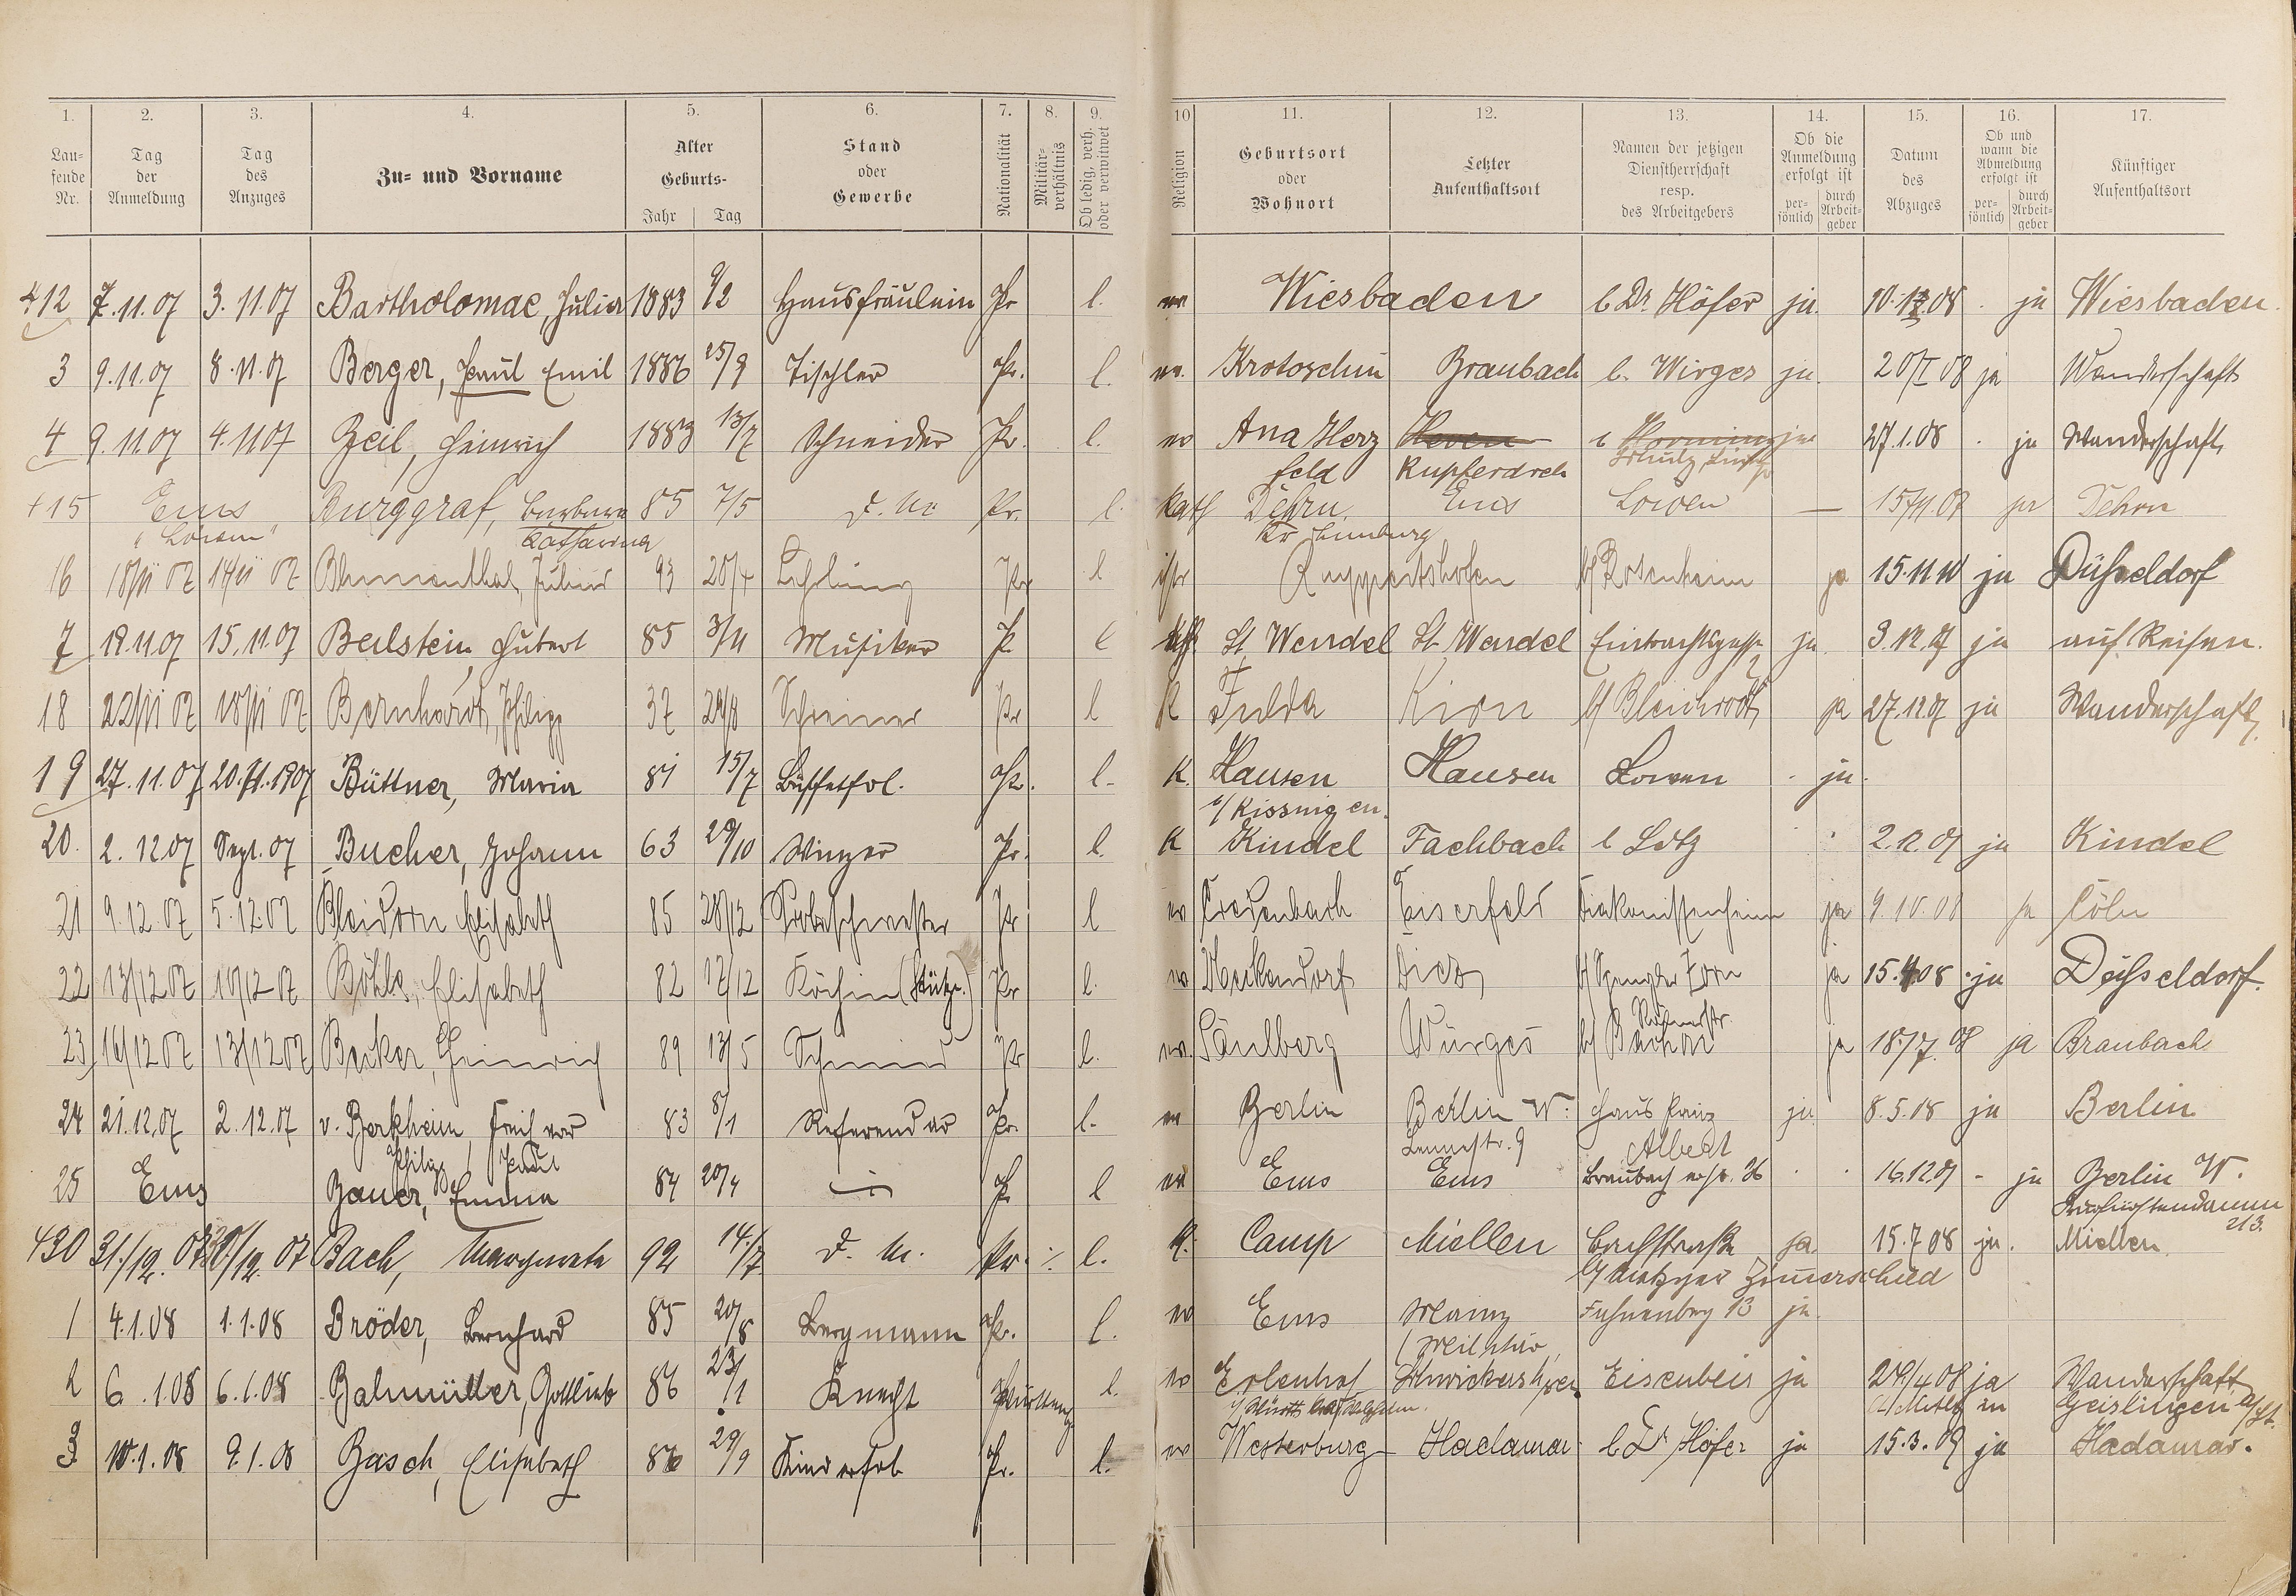 1. 2. 3. 4. 5. 6. 7. 8. 9. 10 11. 12. 13. 14. 15. 16. 17.
Lau-
fende
Nr.
Tag
der
Anmeldung
Tag
des
Anzuges
Zu- und Vorname
Alter
Geburts-
Jahr Tag
Stand
oder
Gewerbe
Nationalität
Militär-
verhältnis
Ob ledig, verh.
oder verwitwet
Religion
Geburtsort
oder
Wohnort
Letzter
Aufenthaltsort
Namen der jetzigen
Dienstherrschaft
resp.
des Arbeitgebers
Ob die
Anmeldung
erfolgt ist
per-
sönlich
durch
Arbeit-
geber
Datum
des
Abzuges
Ob und
wann die
Abmeldung
erfolgt ist
per-
sönlich
durch
Arbeit-
geber
Künftiger
Aufenthaltsort
412 7.11.07 3.11.07 Bartholomae, Julia 1883 9/2 Hausfräulein Pr l. ev. Wiesbaden b Dr. Höfer ja 08 ja Wiesbaden.
3 9.11.07 8.11.07 Berger, Paul Emil 1886 25/9 Tischler Pr. l. ev. Krotoschin Braubach b. Wirges ja 20/I 08 ja Wanderschaft
4 9.11 07 4.11 07 Beil, Heinrich 1883 13/7 Schneider Pr. l. ev Ana Herz ja 27.1.08 ja Wanderschaft
feld Kupferdreh
415 Ems Burggraf, Barbara 85 7/5 D. M. Pr. l. Kath Dehrn Ems Löwen — ja Dehrn
"Löwen" Catharina Kr Limburg
16 18/11 07 14/11 07 Blumenthal, Julius 93 20/4 Lehrling Pr l isr Ruppertshofen b/ Rosenheim ja 15.11 10 ja Düsseldorf
7 18.11.07 15.11.07 Beilstein, Hubert 85 3/11 Musiker P l St Wendel St. Wendel ja 3.12.07 ja auf Reisen.
18 22/11 07 18/11 07 Bernhardt, Philipp 37 29/8 Schreiner Pr l K Fulda Kirn b/ Bleichrodt ja 27.12.07 ja Wanderschaft
19 27.11.07 20.11.1907 Büttner, Maria 81 15/7 Büffetfrl. Pr. l. K. Hausen Hausen Löwen ja.
b/ Kissingen.
20. 2.12.07 Sept. 07 Bucher, Johann 63 29/10 Winzer Pr. l. K Kindel Fachbach b Lotz 2.12.07 ja Kindel
21 9.12 07 5.12.07 Bleidorn Elisabeth 85 28/12 Probeschwester Pr l ev Eiserfeld Diakonissenheim ja 9.10.08 ja Cöln
22 13/12 07 10/12 07 Böhle, Elisabeth 82 12/12 Köchin (Stütze.) Pr l. ev Diez ja 15.4.08 ja Düsseldorf.
23 16/12 07 13/12 07 Becker, Heinrich 89 13/5 Schmied Pr l. ev. Würges ja 18/7 08 ja Braubach
24 21.12.07 2.12.07 v. Berkheim, Freiherr 83 8/1 Referendar Pr. l. ev Berlin Berlin W. Haus Prinz ja 8.5.08 ja Berlin
Philipp Paul Lennéstr. 9 Albert
25 Ems Bauer, Emma 84 20/4 Pr l ev Ems Ems 16.12.07 - ja Berlin W.
Kurfürstendamm
213.
430 31./12. 07 30/12. 07 Bach, Margareta 92 14./7. D. M. Pr. l. K. Camp Miellen Bachstraße ja. 15.7 08 ja. Miellen
b/ Metzger Zimerschied
1 4.1.08 1.1.08 Bröder, Bernhard 85 20/8 Bergmann Pr. l. ev Ems Mainz 13 ja
2 6.1.08 6.1.08 Bahmüller, Gottlieb 86 23/11 Knecht Württemg l. ev Erlenhof Eisenbeis ja 29/4 08 ja Wanderschaft
Geislingen a/St.
3 10.1.08 9.1.08 Basch, Elisabeth 86 29/9 Kinderfrl. Pr. l. ev Westerburg Hadamar b. Dr Höfer ja 15.3.09 ja Hadamar.